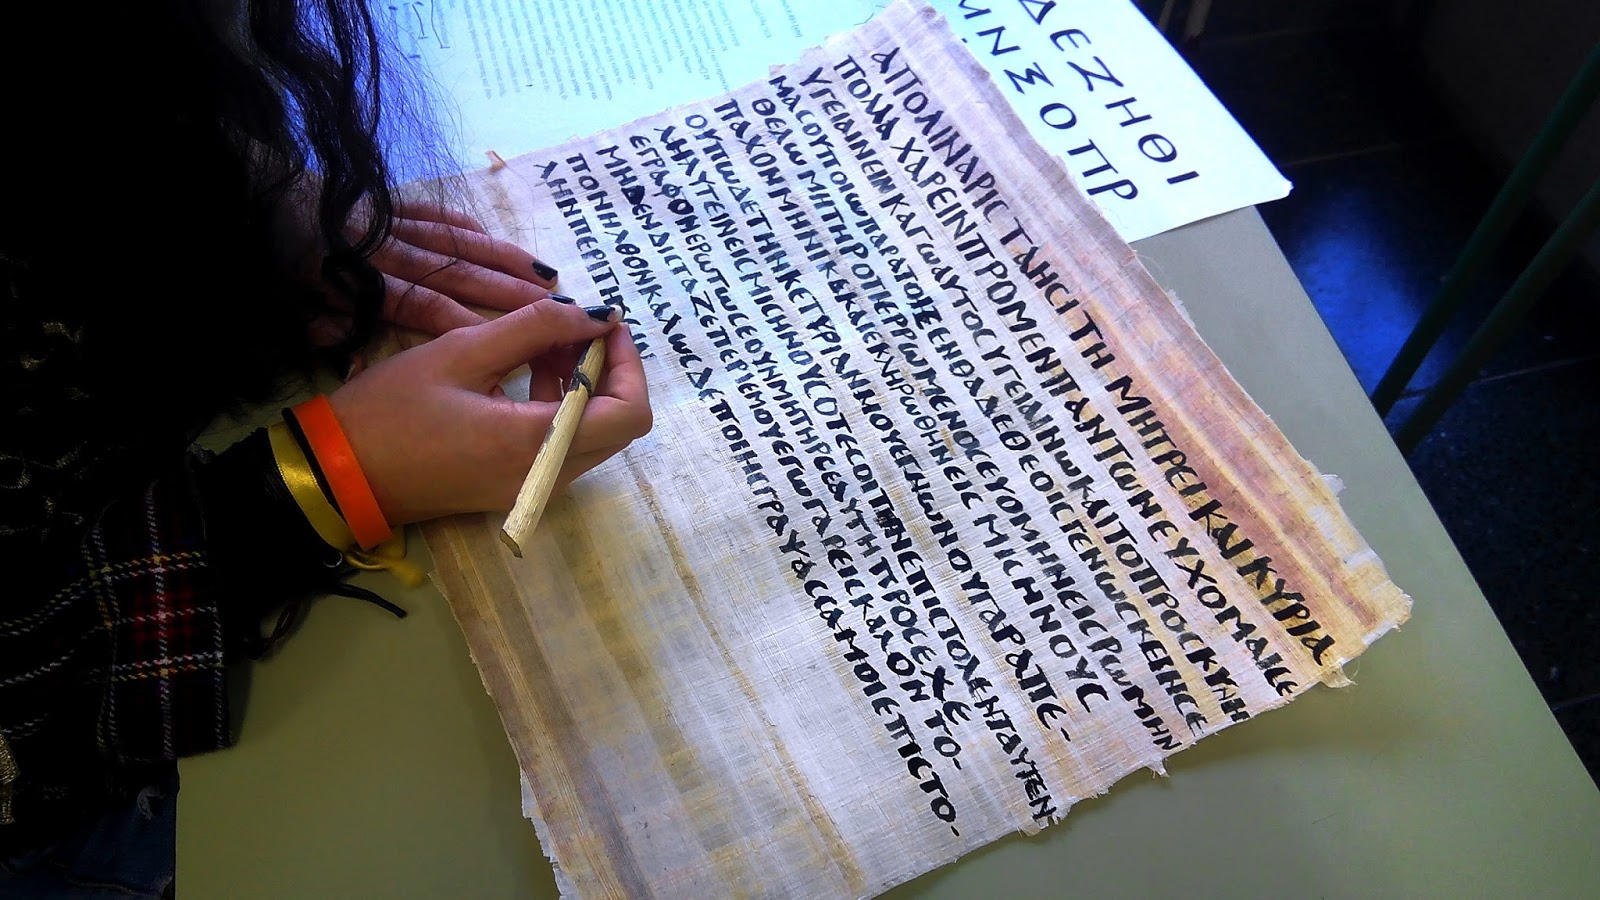 ΔΕΖΗΘΙ
ΜΝΞΟΠΡ
ΑΠΟΛΙΝΑΡΙC ΤΑΗCΙ ΤΗ ΜΗΤΡΕΙ ΚΑΙ ΚΥΡΙΑ
ΠΟΛΛΑ ΧΑΡΕΙΝ ΠΡΟ ΜΕΝ ΠΑΝΤΩΝ ΕΥΧΟΜΑΙ CΕ
ΥΓΕΙΑΙΝΕΙΝ ΚΑΓΩ ΑΥΤΟC ΥΓΕΙΑΙΝΩ ΚΑΙ ΤΟ ΠΡΟCΚΥΝΗ
ΜΑ CΟΥ ΠΟΙΩ ΠΑΡΑ ΤΟΙC ΕΝΘΑΔΕ ΘΕΟΙC ΓΕΝΩCΚΕΙΝ CΕ
ΘΕΛΩ ΜΗΤΗΡ ΟΤΙ ΕΡΡΩΜΕΝΟC ΕΥΟΜΗΝ ΕΙC ΡΩΜΗΝ
ΠΑΧΟΝ ΜΗΝΙ ΚΑΙ ΕΚΛΗΡΩΘΗΝ ΕΙC ΜΙCΗΝΟΥC
ΟΥΠΩ ΔΕ ΤΗΝ ΚΕΤΥΡΙΑΝ ΜΟΥ ΕΓΝΩΝ ΟΥ ΓΑΡ ΑΠΕ-
ΛΗΛΥΤΕΙΝ ΕΙC ΜΙCΗΝΟΥC ΟΤΕ CΟΙ ΤΗΝ ΕΠΙCΤΟΛΕΝ ΤΑΥΤΕΝ
ΕΓΡΑΦΟΝ ΕΡΩΤΩ CΕ ΟΥΝ ΜΗΤΗΡ CΕΑΥΤΗ ΠΡΟCΕΧΕ
ΜΗΔΕΝ ΔΙCΤΑΖΕ ΠΕΡΙ ΕΜΟΥ ΕΓΩ ΓΑΡ ΕΙC ΚΑΛΟΝ ΤΟ-
ΠΟΝ ΗΛΘΟΝ ΚΑΛΩC ΔΕ ΠΟΙΗCΙC ΓΡΑΨΑCCΑ ΜΟΙ ΕΠΙCΤΟ-
ΛΗΝ ΠΕΡΙ ΤΗC